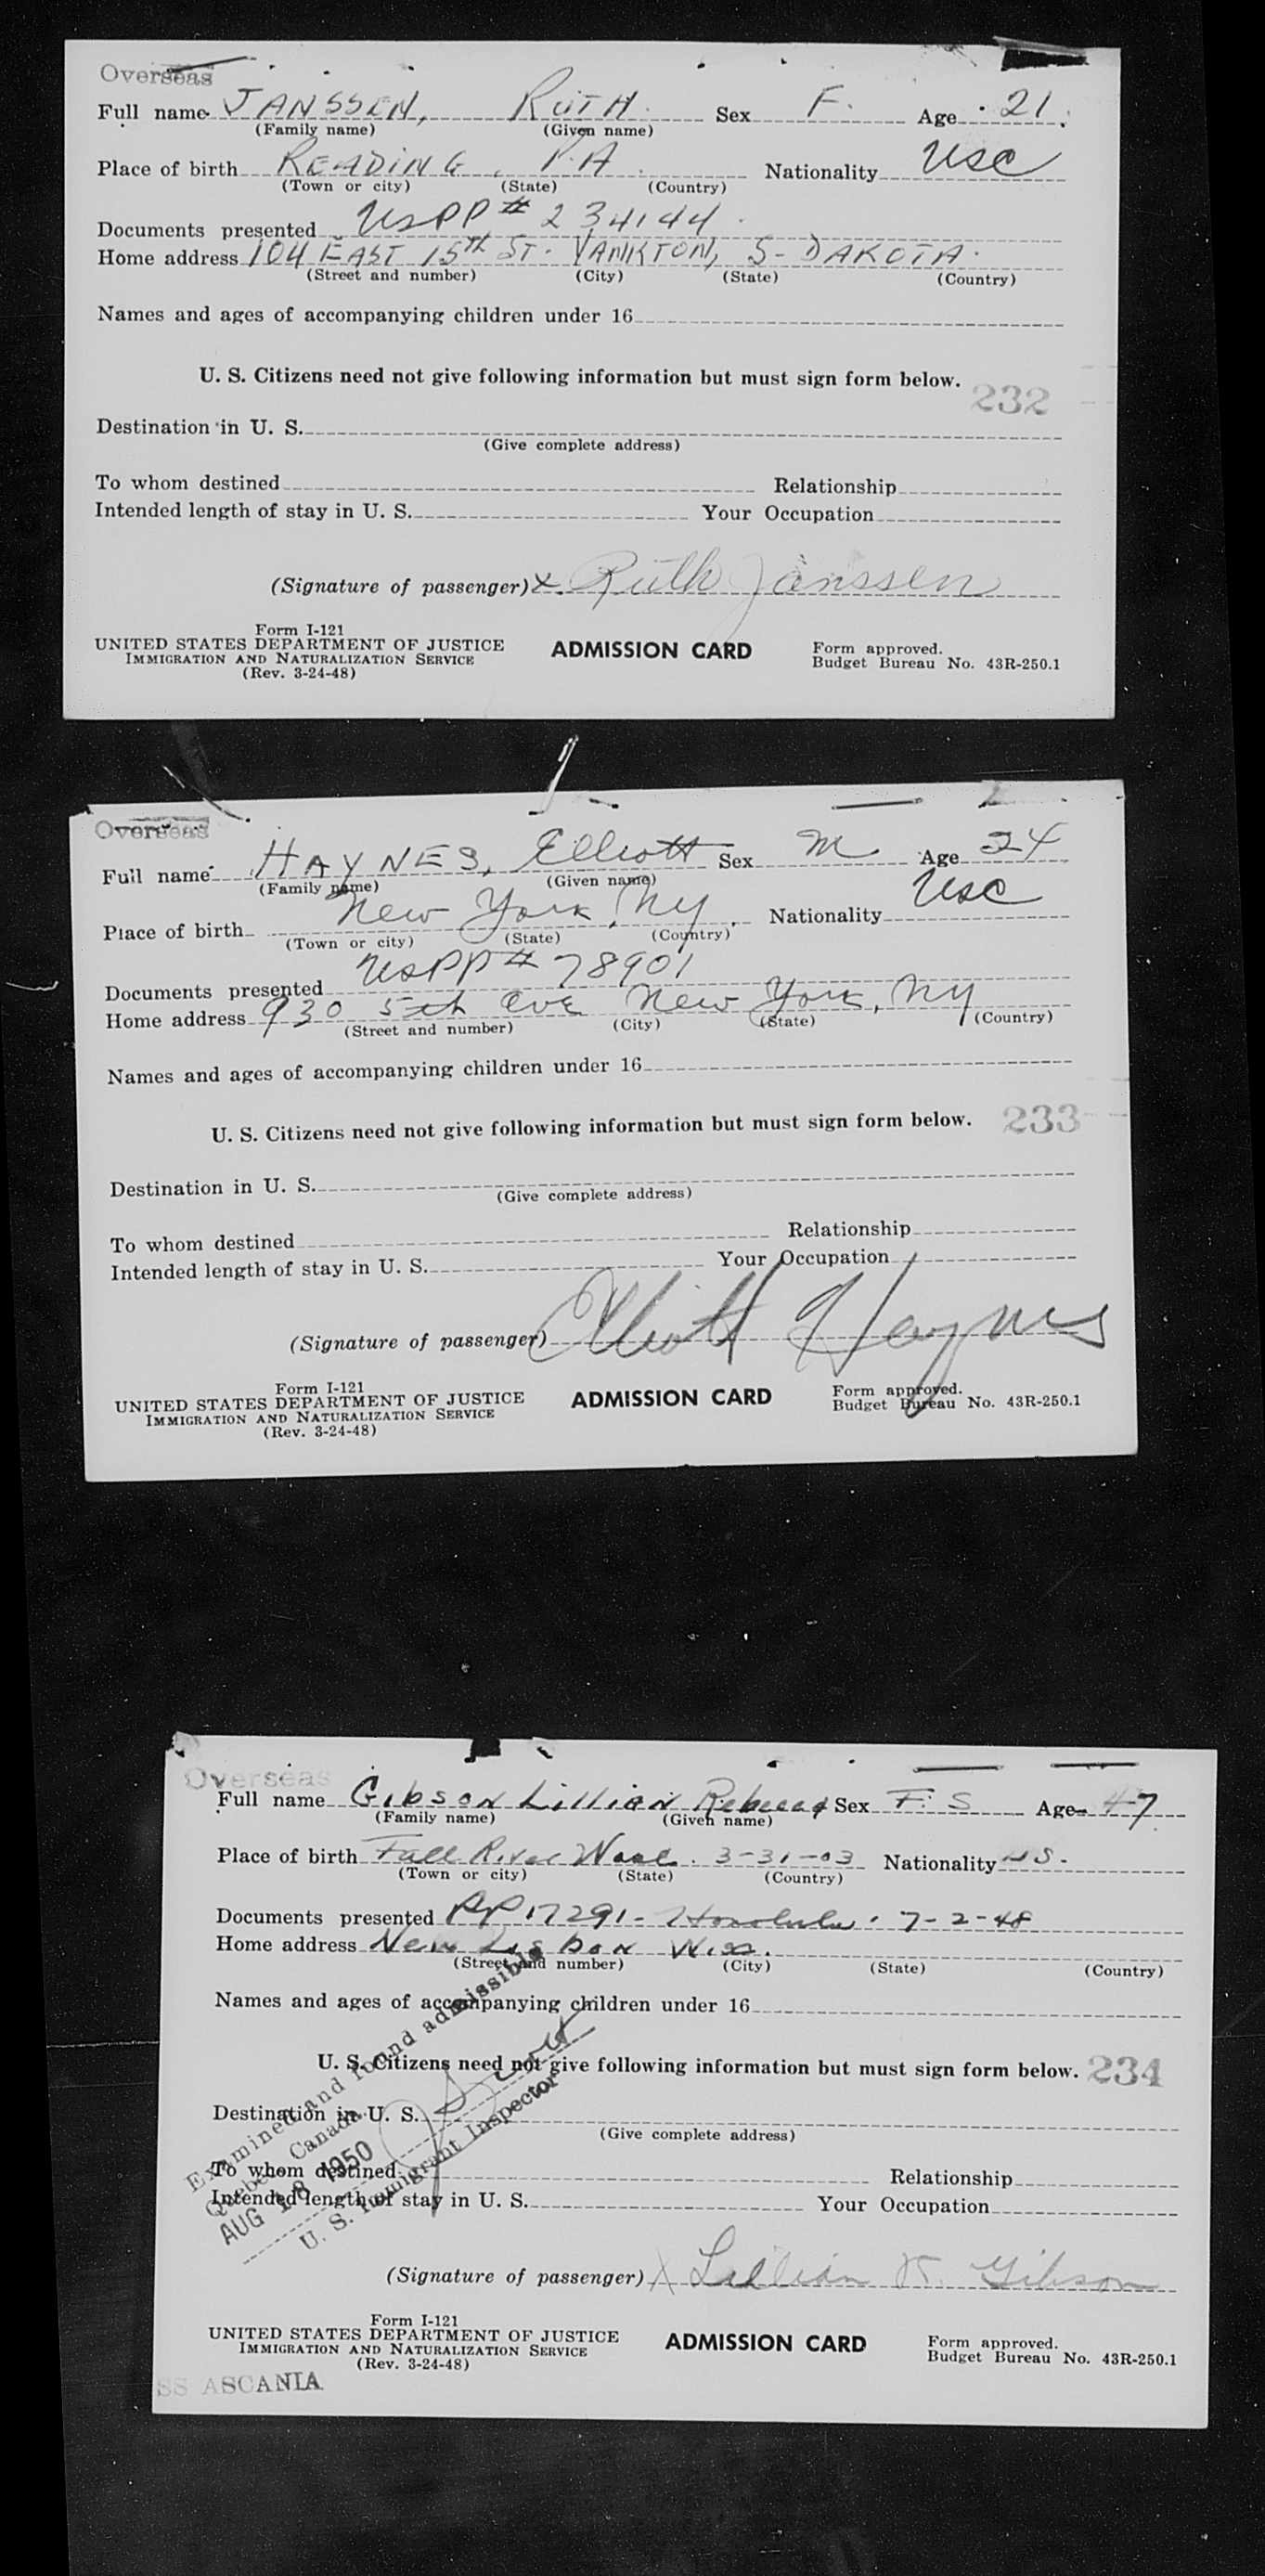 Overseas
Full name JANSSEN, RUTH. Sex F. Age 21.
(Family name) (Given name)
Place of birth READING, PA. Nationality USC
(Town or city) (State) (Country)
Documents presented USPP# 234144
Home address 104 EAST 15th ST. YANKTON, S-DAKOTA.
(Street and number) (City) (State) (Country)
Names and ages of accompanying children under 16
U. S. Citizens need not give following information but must sign form below.
232
Destination in U. S.
(Give complete address)
To whom destined Relationship
Intended length of stay in U. S. Your Occupation
(Signature of passenger) x Ruth Janssen
Form I-121
UNITED STATES DEPARTMENT OF JUSTICE ADMISSION CARD Form approved.
IMMIGRATION AND NATURALIZATION SERVICE Budget Bureau No. 43R-250.1
(Rev. 3-24-48)
Overseas
Full name HAYNES, Elliott Sex M Age 24
(Family name) (Given name)
Place of birth New York, NY. Nationality USC
(Town or city) (State) (Country)
Documents presented USPP# 78901
Home address 930 5th Ave New York, NY
(Street and number) (City) (State) (Country)
Names and ages of accompanying children under 16
U. S. Citizens need not give following information but must sign form below. 233
Destination in U. S.
(Give complete address)
To whom destined Relationship
Intended length of stay in U. S. Your Occupation
(Signature of passenger) Elliott Haynes
Form I-121
UNITED STATES DEPARTMENT OF JUSTICE ADMISSION CARD Form approved.
IMMIGRATION AND NATURALIZATION SERVICE Budget Bureau No. 43R-250.1
(Rev. 3-24-48)
Overseas
Full name Gibson Lillian Rebecca Sex F. S Age 47
(Family name) (Given name)
Place of birth Fall River 3-31-03 Nationality US.
(Town or city) (State) (Country)
Documents presented PP 17291 - Honolulu. 7-2-48
Home address New Lisbon Wis.
(Street and number) (City) (State) (Country)
Names and ages of accompanying children under 16
U. S. Citizens need not give following information but must sign form below. 234
Destination in U. S.
(Give complete address)
To whom destined Relationship
Intended length of stay in U. S. Your Occupation
Examined and found admissible
Quebec, Canada.
AUG 18 1950
U. S. Immigrant Inspector
(Signature of passenger) X Lillian R. Gibson
Form I-121
UNITED STATES DEPARTMENT OF JUSTICE ADMISSION CARD Form approved.
IMMIGRATION AND NATURALIZATION SERVICE Budget Bureau No. 43R-250.1
(Rev. 3-24-48)
SS ASCANIA